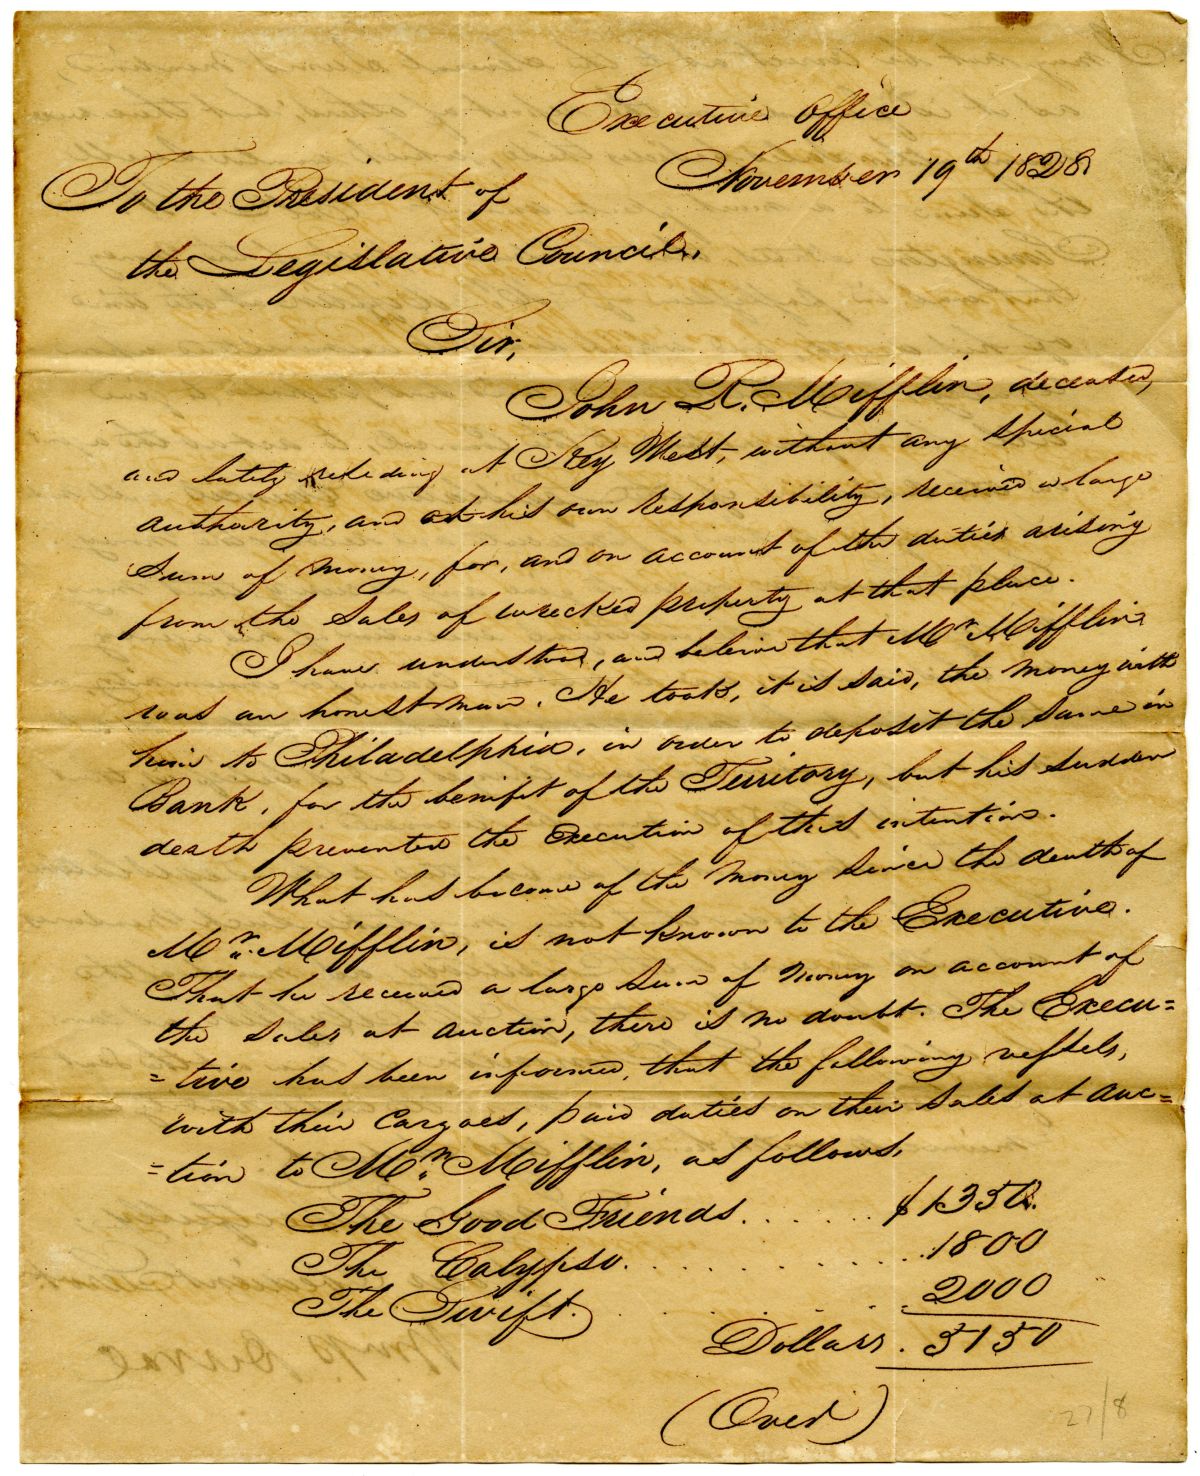 Executive Office
November 19th 1828
To the President of
the Legislative Council.
Sir,
John R. Mifflin, deceased,
and lately residing at Key West, without any special
authority, and on his own responsibility, received a large
Sum of Money, for, and on account of the duties arising
from the Sales of wrecked property at that place.
I have understood, and believe that Mr. Mifflin
was an honest man. He took, it is said, the money with
him to Philadelphia, in order to deposit the same in
Bank, for the benifit of the Territory, but his sudden
death prevented the Execution of this intention.
What has become of the Money since the death of
Mr. Mifflin, is not known to the Executive.
That he received a large Sum of Money on account of
the Sales at auction, there is no doubt. The Execu=
=tive has been informed, that the following vessels,
with their Cargoes, paid duties on their Sales at auc=
=tion to Mr. Mifflin, as follows,
The Good Friends. . . . . . . $1350.
The Calypso. . . . . . . . . . . 1800
The Swift. . . . . . . 2000
Dollars. 5150
(Over)
27/8